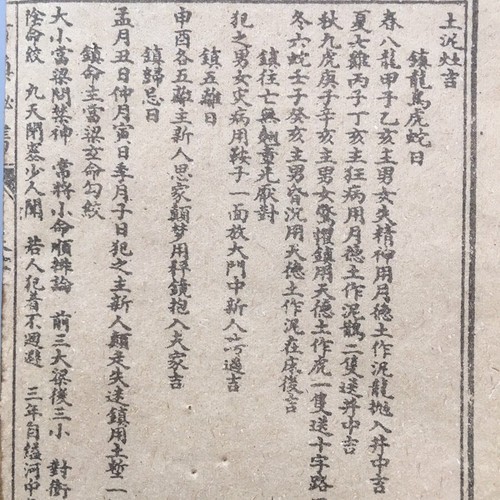 土泥灶吉
鎮龍馬虎蛇日
春八龍甲子乙亥主男女失精神用月德土作泥龍拋入井中吉
夏七雞丙子丁亥主狂病用月德土作泥鵲二隻送井中吉
秋九虎庚子辛亥主男女驚懼鎮用天德土作虎一隻送十字路
冬六蛇壬子癸亥主男昏沉用天德土作泥在床後吉
鎮往亡無翹重光厭對
犯之男女灾病用鞍子一面放大門中新人過吉
鎮五離日
申酉各五離主新人思家顛梦用秤鏡抱入夫家吉
鎮歸忌日
孟月丑日仲月寅日季月子日犯之主新人顛走失送鎮用土塹一
鎮命主當梁立命勾絞
大小當梁問禁神 常將小命順推論 前三大梁後三小 對衝
陰命絞 九天閉塞少人聞 若人犯着不迴避 三年自縊河中